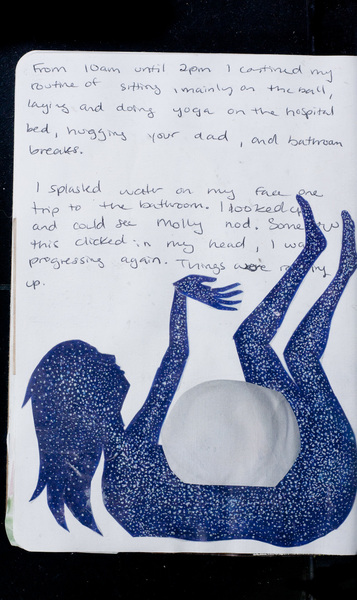 From 10am until 2pm I continued my
routine of sitting, mainly on the ball,
laying and doing yoga on the hospital
bed, hugging your dad, and bathroom
breaks.
I splashed water on my face one
trip to the bathroom. I looked
and could see Molly nod.
this clicked in my head, I
progressing again. Things were
up.